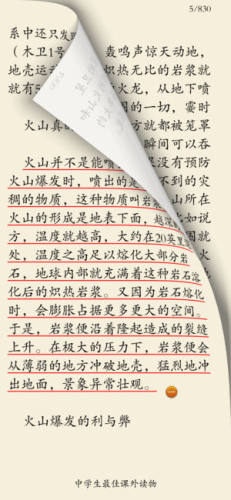 5/830
系中还只发
（木卫1号 轰鸣声惊天动地，
地壳运 炽热无比的岩浆就
就有 火龙，从地下喷
围的一切，霎时
火山真的 方就都被笼罩
瞬间可以吞
火山并不是能喷 没有预防
火山爆发时，喷出的是 不到的灾
稠的物质，这种物质叫岩 山所在
火山的形成是地表下面，越 如说
方，温度就越高，大约在20英里 就
处，温度之高足以熔化大部分岩
石，地球内部就充满着这种岩石熔
化后的炽热岩浆。又因为岩石熔化
时，会膨胀占据更多更大的空间。
于是，岩浆便沿着隆起造成的裂缝
上升。在极大的压力下，岩浆便会
从薄弱的地方冲破地壳，猛烈地冲
出地面，景象异常壮观。
火山爆发的利与弊
中学生最佳课外读物